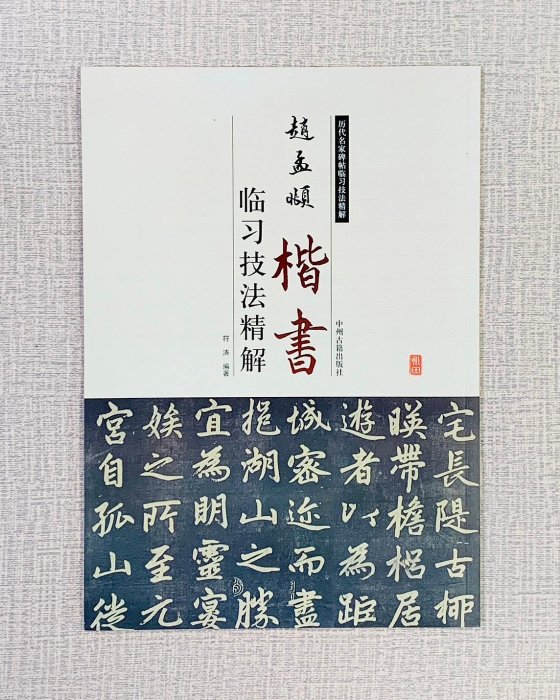 历代名家碑帖临习技法精解
趙孟頫
楷書
临习技法精解
符涛 编著
中州古籍出版社
宅長隄古柳
暎帶檐梠居
遊者以為距
城密迩而盡
挹湖山之勝
宜為明靈宴
娭之所至元
宮自孤山徙